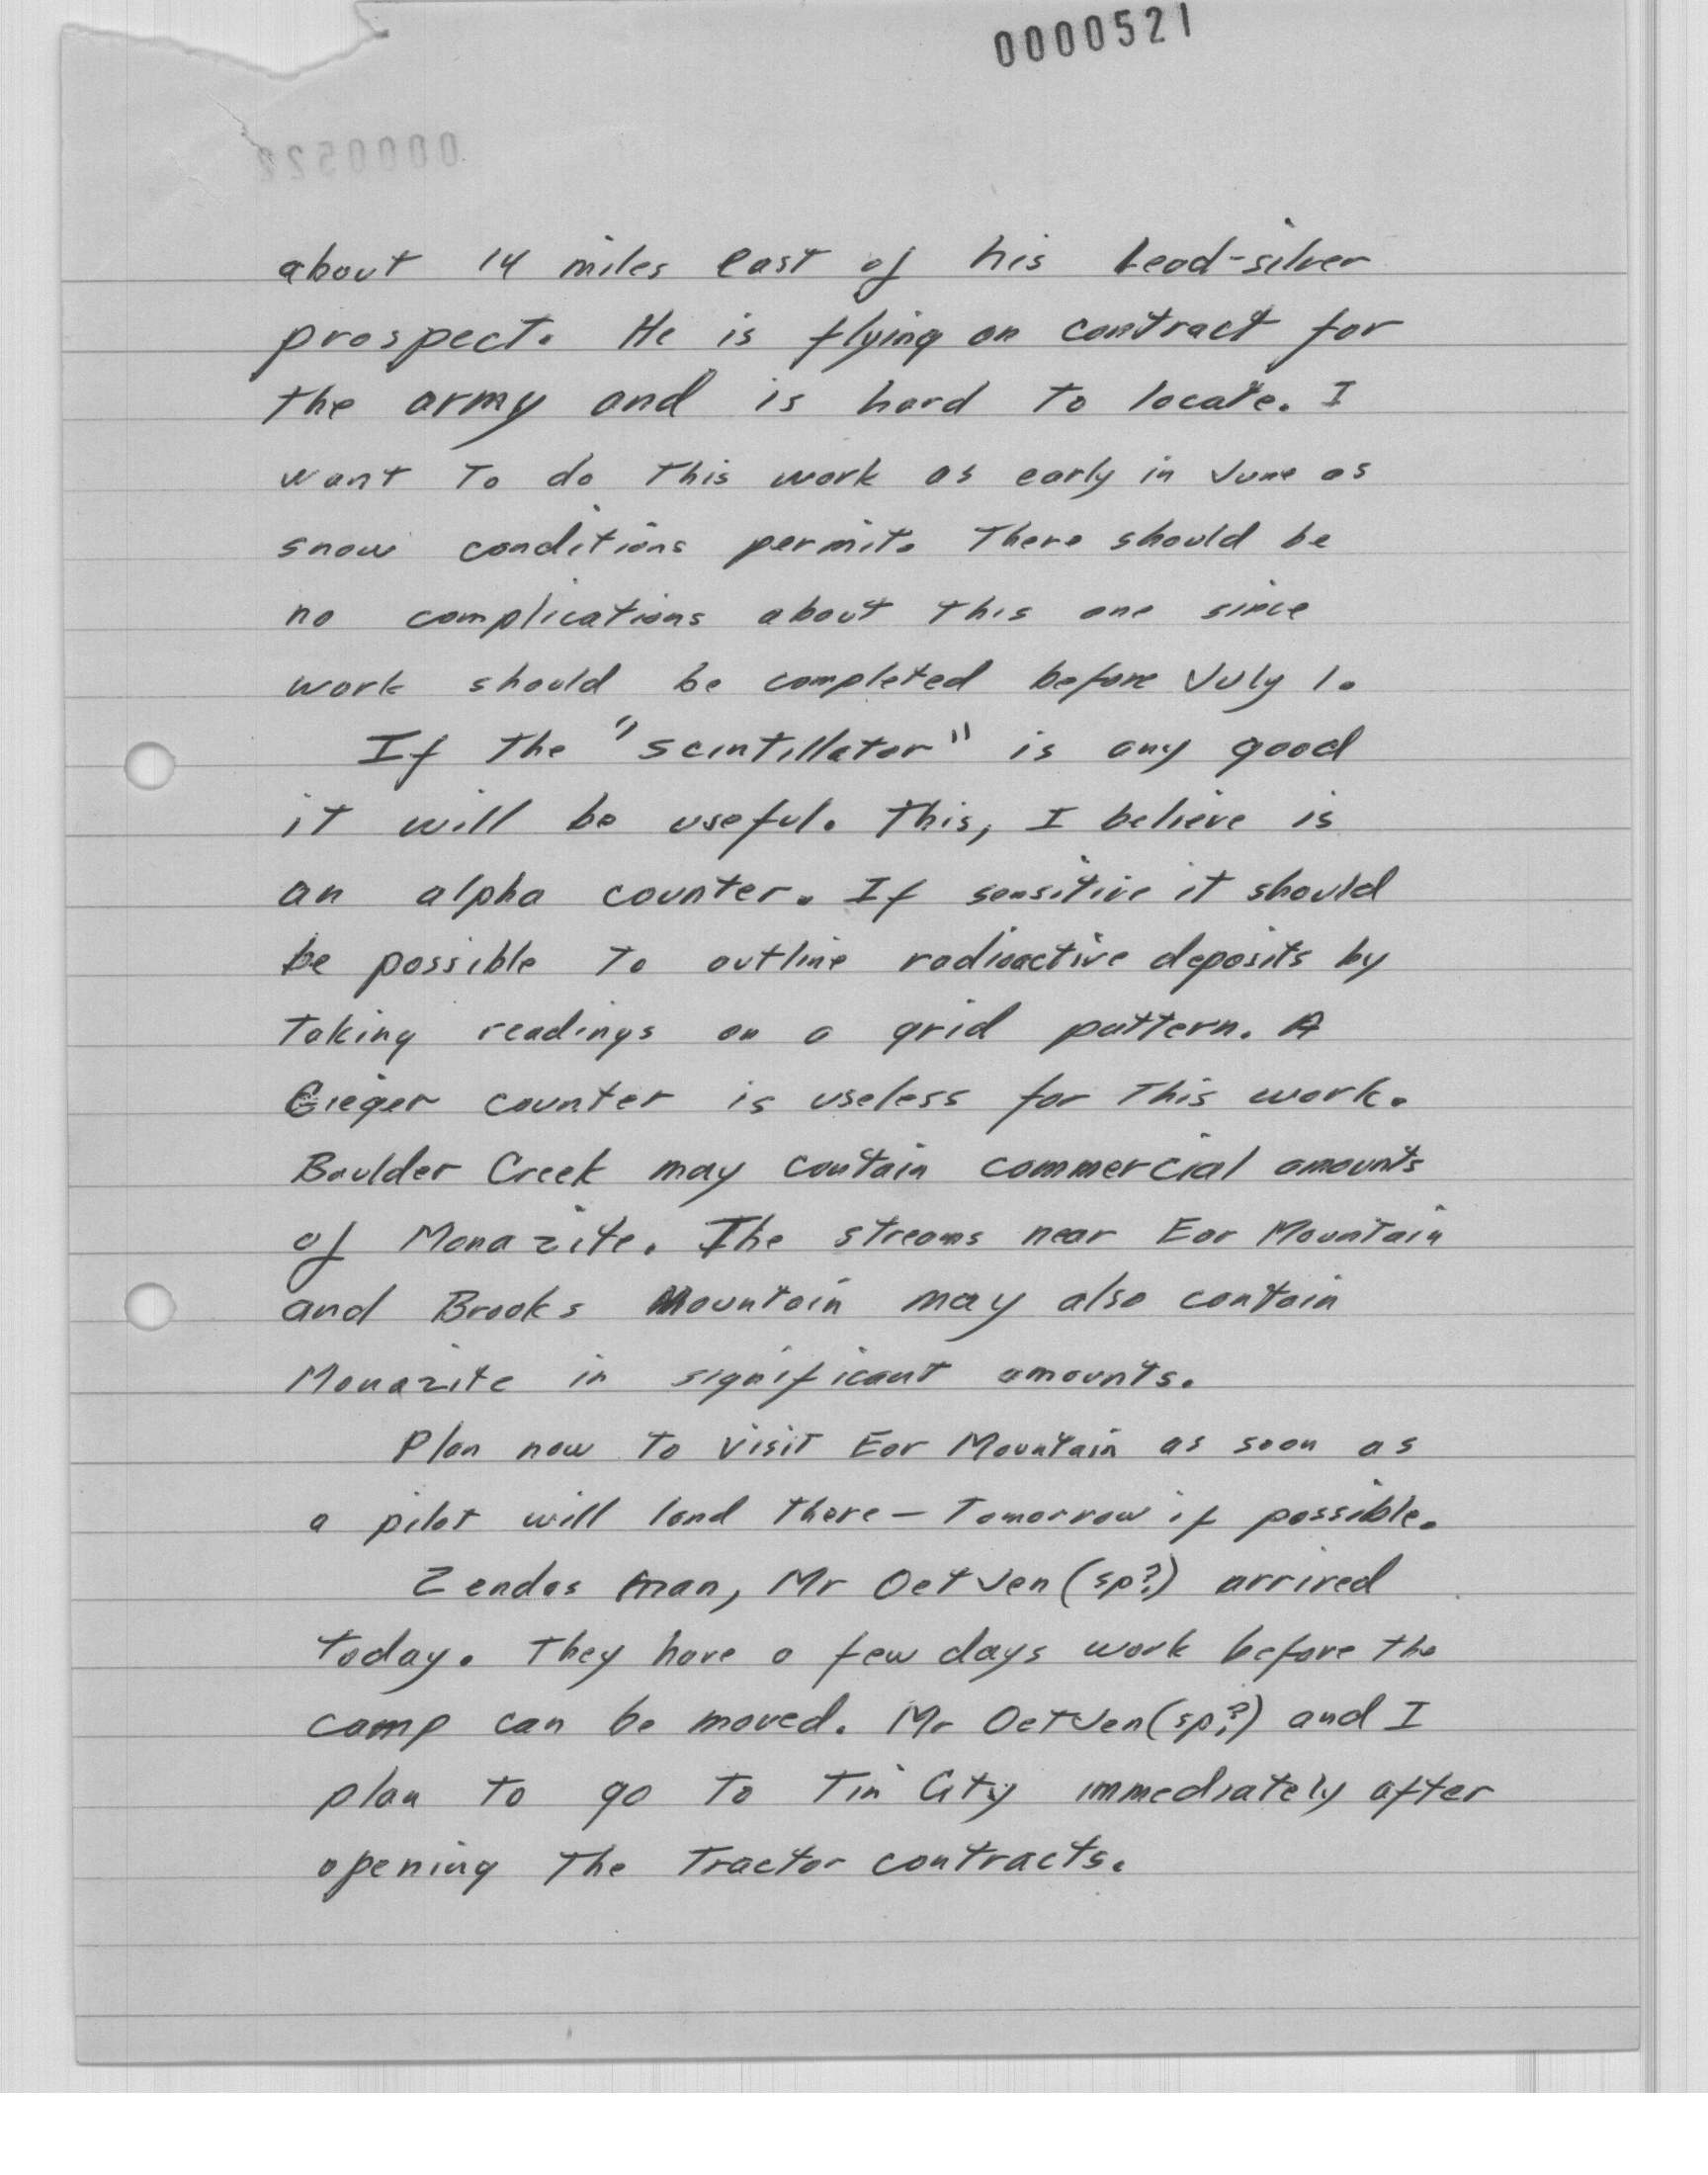 0000521
0000522
about 14 miles east of his Lead-silver
prospect. He is flying on contract for
the army and is hard to locate. I
want to do this work as early in June as
snow conditions permit. There should be
no complications about this one since
work should be completed before July 1.
If the "scintillator" is any good
it will be useful. This, I believe is
an alpha counter. If sensitive it should
be possible to outline radioactive deposits by
taking readings on a grid pattern. A
Gieger counter is useless for this work.
Boulder Creek may contain commercial amounts
of Monazite. The streams near Ear Mountain
and Brooks Mountain may also contain
Monazite in significant amounts.
Plan now to visit Ear Mountain as soon as
a pilot will land there — Tomorrow if possible.
Zendas man, Mr OetJen (sp?) arrived
today. They have a few days work before the
camp can be moved. Mr OetJen (sp?) and I
plan to go to Tin City immediately after
opening the tractor contracts.